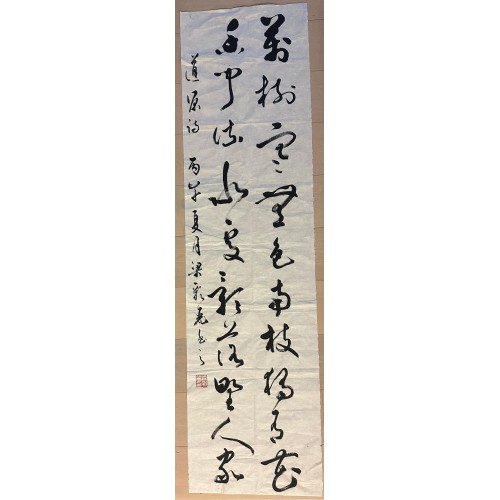 萬樹寒無色南枝獨有花
香聞流水處影落野人家
道源詩 丙午夏月梁